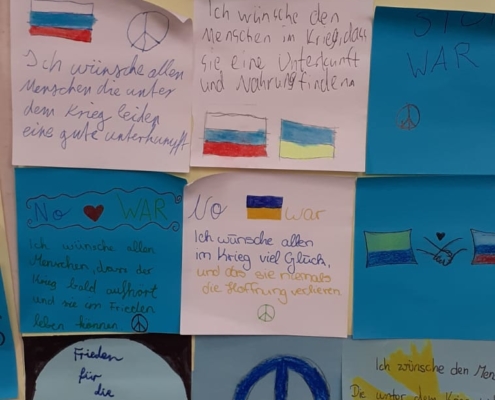 Ich wünsche allen
Menschen die unter
dem Krieg leiden
eine gute unterkunft
Ich wünsche den
Menschen im Krieg, dass
sie eine Unterkunft
und Nahrung finden
STOP
WAR
No WAR
Ich wünsche allen
Menschen, dass der
Krieg bald aufhört
und sie in Frieden
leben können
No war
Ich wünsche allen
im Krieg viel Glück,
und das sie niemals
die Hoffnung verlieren
Frieden
für
die
Ich wünsche den Men
Die unter dem Krieg